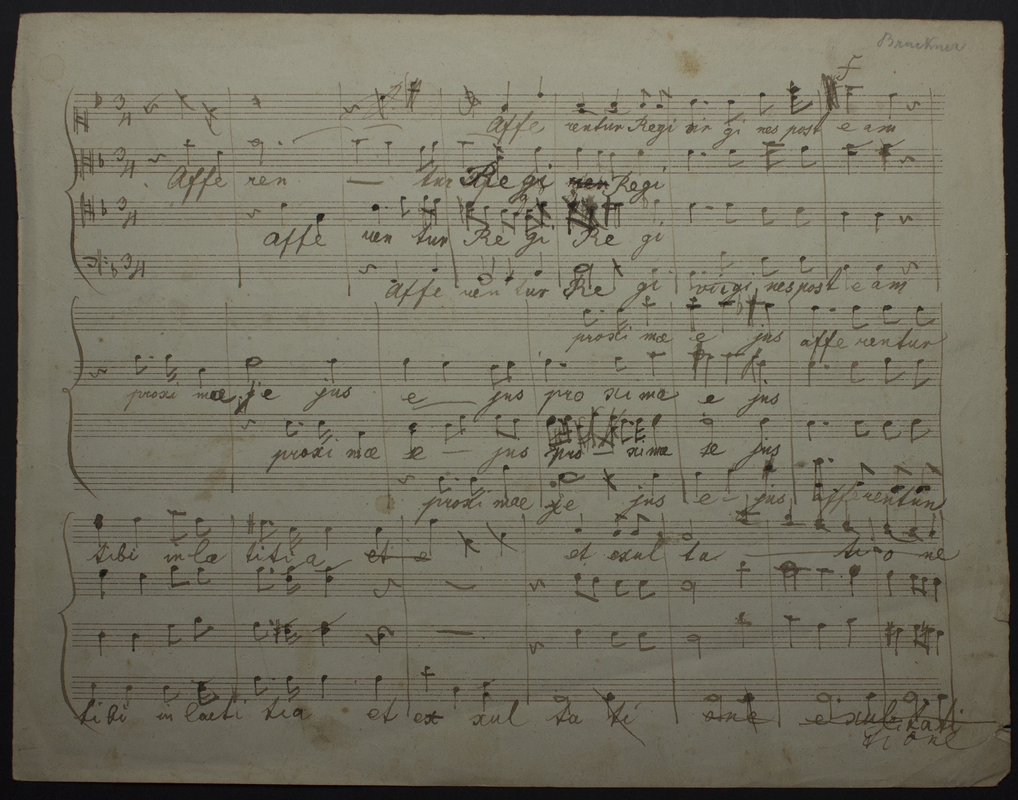 Bruckner
f
Affe rentur Regi vir gi nes post e am
Affe ren — tur Re gi Regi
affe ren tur Re gi Re gi
Affe ren tur Re gi virgi nes post e am
proxi mæ e jus afferentur
proxi mæ e jus e jus pro xi mæ e jus
proxi mæ e — jus pro — ximæ e jus
proxi mae e jus e — jus afferentur
tibi in læ titi a et e et exul ta — ti o ne
tibi in laeti tia et ex xul ta ti one exultati
ti one